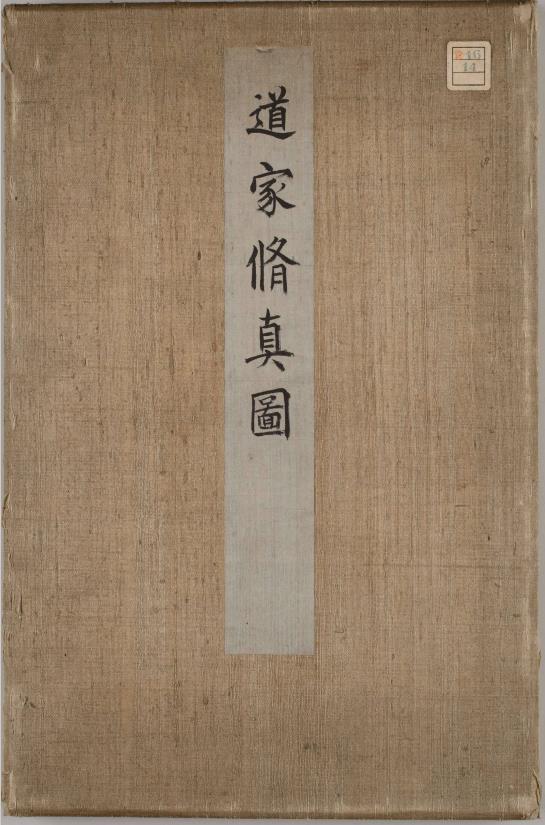 道家脩真圖
R 16
14